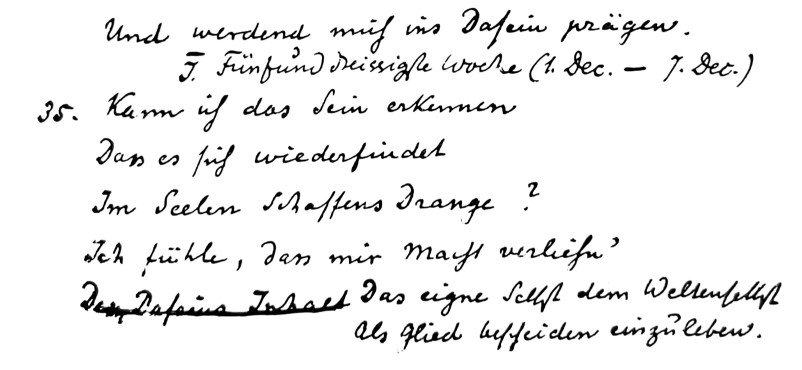 Und werdend mich ins Dasein prägen.
I. Fünfunddreissigste Woche (1. Dec. — 7. Dec.)
35. Kann ich das Sein erkennen
Dass es sich wiederfindet
Im Seelen Schaffens Drange?
Ich fühle, dass mir Macht verlieh'n
Des Daseins Inhalt Das eigne Selbst dem Weltenselbst
Als Glied bescheiden einzuleben.